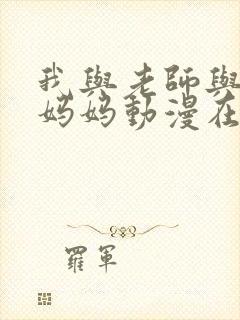 我與老師與
媽媽動漫在
羅軍